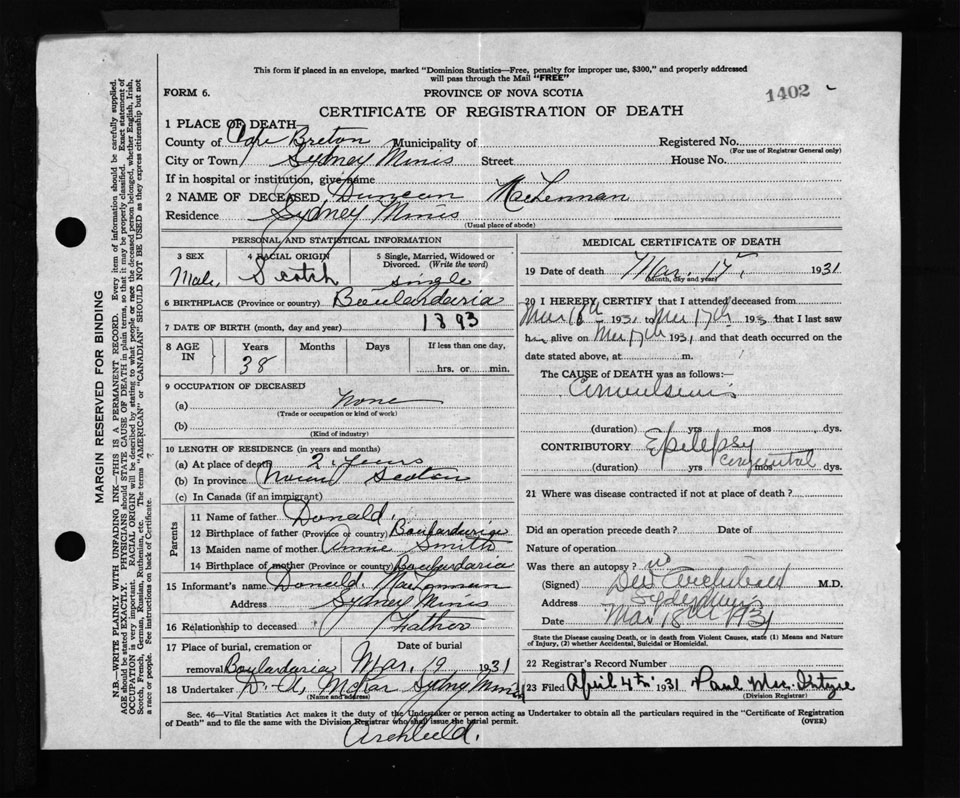 This form if placed in an envelope, marked "Dominion Statistics—Free, penalty for improper use, $300," and properly addressed
will pass through the Mail "FREE"
FORM 6.
PROVINCE OF NOVA SCOTIA
1402
CERTIFICATE OF REGISTRATION OF DEATH
1 PLACE OF DEATH
County of Cape Breton Municipality of Registered No.
(For use of Registrar General only)
City or Town Sydney Mines Street House No.
If in hospital or institution, give name
2 NAME OF DECEASED Duncan MacLennan
Residence Sydney Mines
(Usual place of abode)
PERSONAL AND STATISTICAL INFORMATION
3 SEX 4 RACIAL ORIGIN 5 Single, Married, Widowed or
Divorced. (Write the word)
Male Scotch Single
6 BIRTHPLACE (Province or country) Boulardaria
7 DATE OF BIRTH (month, day and year) 1893
8 AGE IN Years Months Days If less than one day,
38 hrs. or min.
9 OCCUPATION OF DECEASED
(a) none
(Trade or occupation or kind of work)
(b)
(Kind of industry)
10 LENGTH OF RESIDENCE (in years and months)
(a) At place of death 2 years
(b) In province Nova Scotia
(c) In Canada (if an immigrant)
Parents
11 Name of father Donald.
12 Birthplace of father (Province or country) Boulardaria
13 Maiden name of mother Annie Smith
14 Birthplace of mother (Province or country) Boulardaria
15 Informant's name Donald MacLennan
Address Sydney Mines
16 Relationship to deceased Father
17 Place of burial, cremation or Date of burial
removal Boulardaria Mar. 19 1931
18 Undertaker D. A. Sydney Mines
(Name and address)
MEDICAL CERTIFICATE OF DEATH
19 Date of death Mar. 17. 1931
(Month, day and year)
20 I HEREBY CERTIFY that I attended deceased from
Mar 16th 1931 to Mar 17th 193 that I last saw
him alive on Mar 17th 1931 and that death occurred on the
date stated above, at m.
The CAUSE of DEATH was as follows:—
Convulsions
(duration) yrs mos dys.
CONTRIBUTORY Epilepsy
Congenital
(duration) yrs mos dys.
21 Where was disease contracted if not at place of death?
Did an operation precede death? Date of
Nature of operation
Was there an autopsy? no
(Signed) Archibald M.D.
Address
Date Mar 18th 1931
State the Disease causing Death, or in death from Violent Causes, state (1) Means and Nature
of Injury, (2) whether Accidental, Suicidal or Homicidal.
22 Registrar's Record Number
23 Filed April 4th 1931 Paul
(Division Registrar)
Sec. 46—Vital Statistics Act makes it the duty of the Undertaker or person acting as Undertaker to obtain all the particulars required in the "Certificate of Registration
of Death" and to file the same with the Division Registrar who shall issue the burial permit.
(OVER)
Archibald.
MARGIN RESERVED FOR BINDING
N.B.—WRITE PLAINLY WITH UNFADING INK—THIS IS A PERMANENT RECORD. Every item of information should be carefully supplied.
AGE should be stated EXACTLY. PHYSICIANS should STATE CAUSE OF DEATH in plain terms, so that it may be properly classified. Exact statement of
OCCUPATION is very important. RACIAL ORIGIN will be described by stating to what people or race the deceased person belonged, whether English, Irish,
Scotch, French, German, Russian, Ruthenian, etc. The terms "AMERICAN" or "CANADIAN" SHOULD NOT BE USED as they express citizenship but not
a race or people. Fee instructions on back of Certificate.